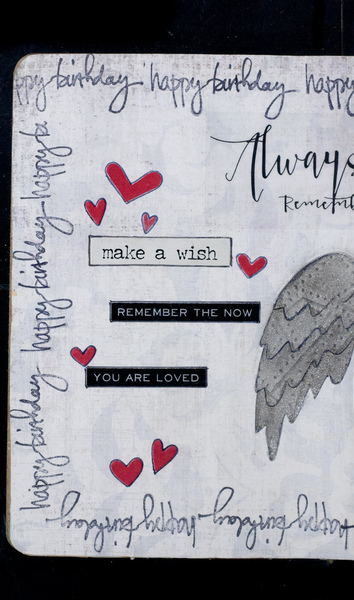 happy birthday happy birthday happy
Always
Rememb
make a wish
REMEMBER THE NOW
YOU ARE LOVED
happy birthday happy birthday happy bi
happy birthday happy birthday happy birthday